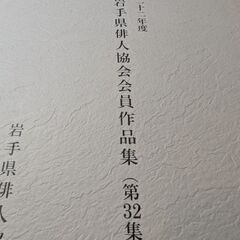 二十二年度
岩手県俳人協会会員作品集（第32集
岩手県俳人